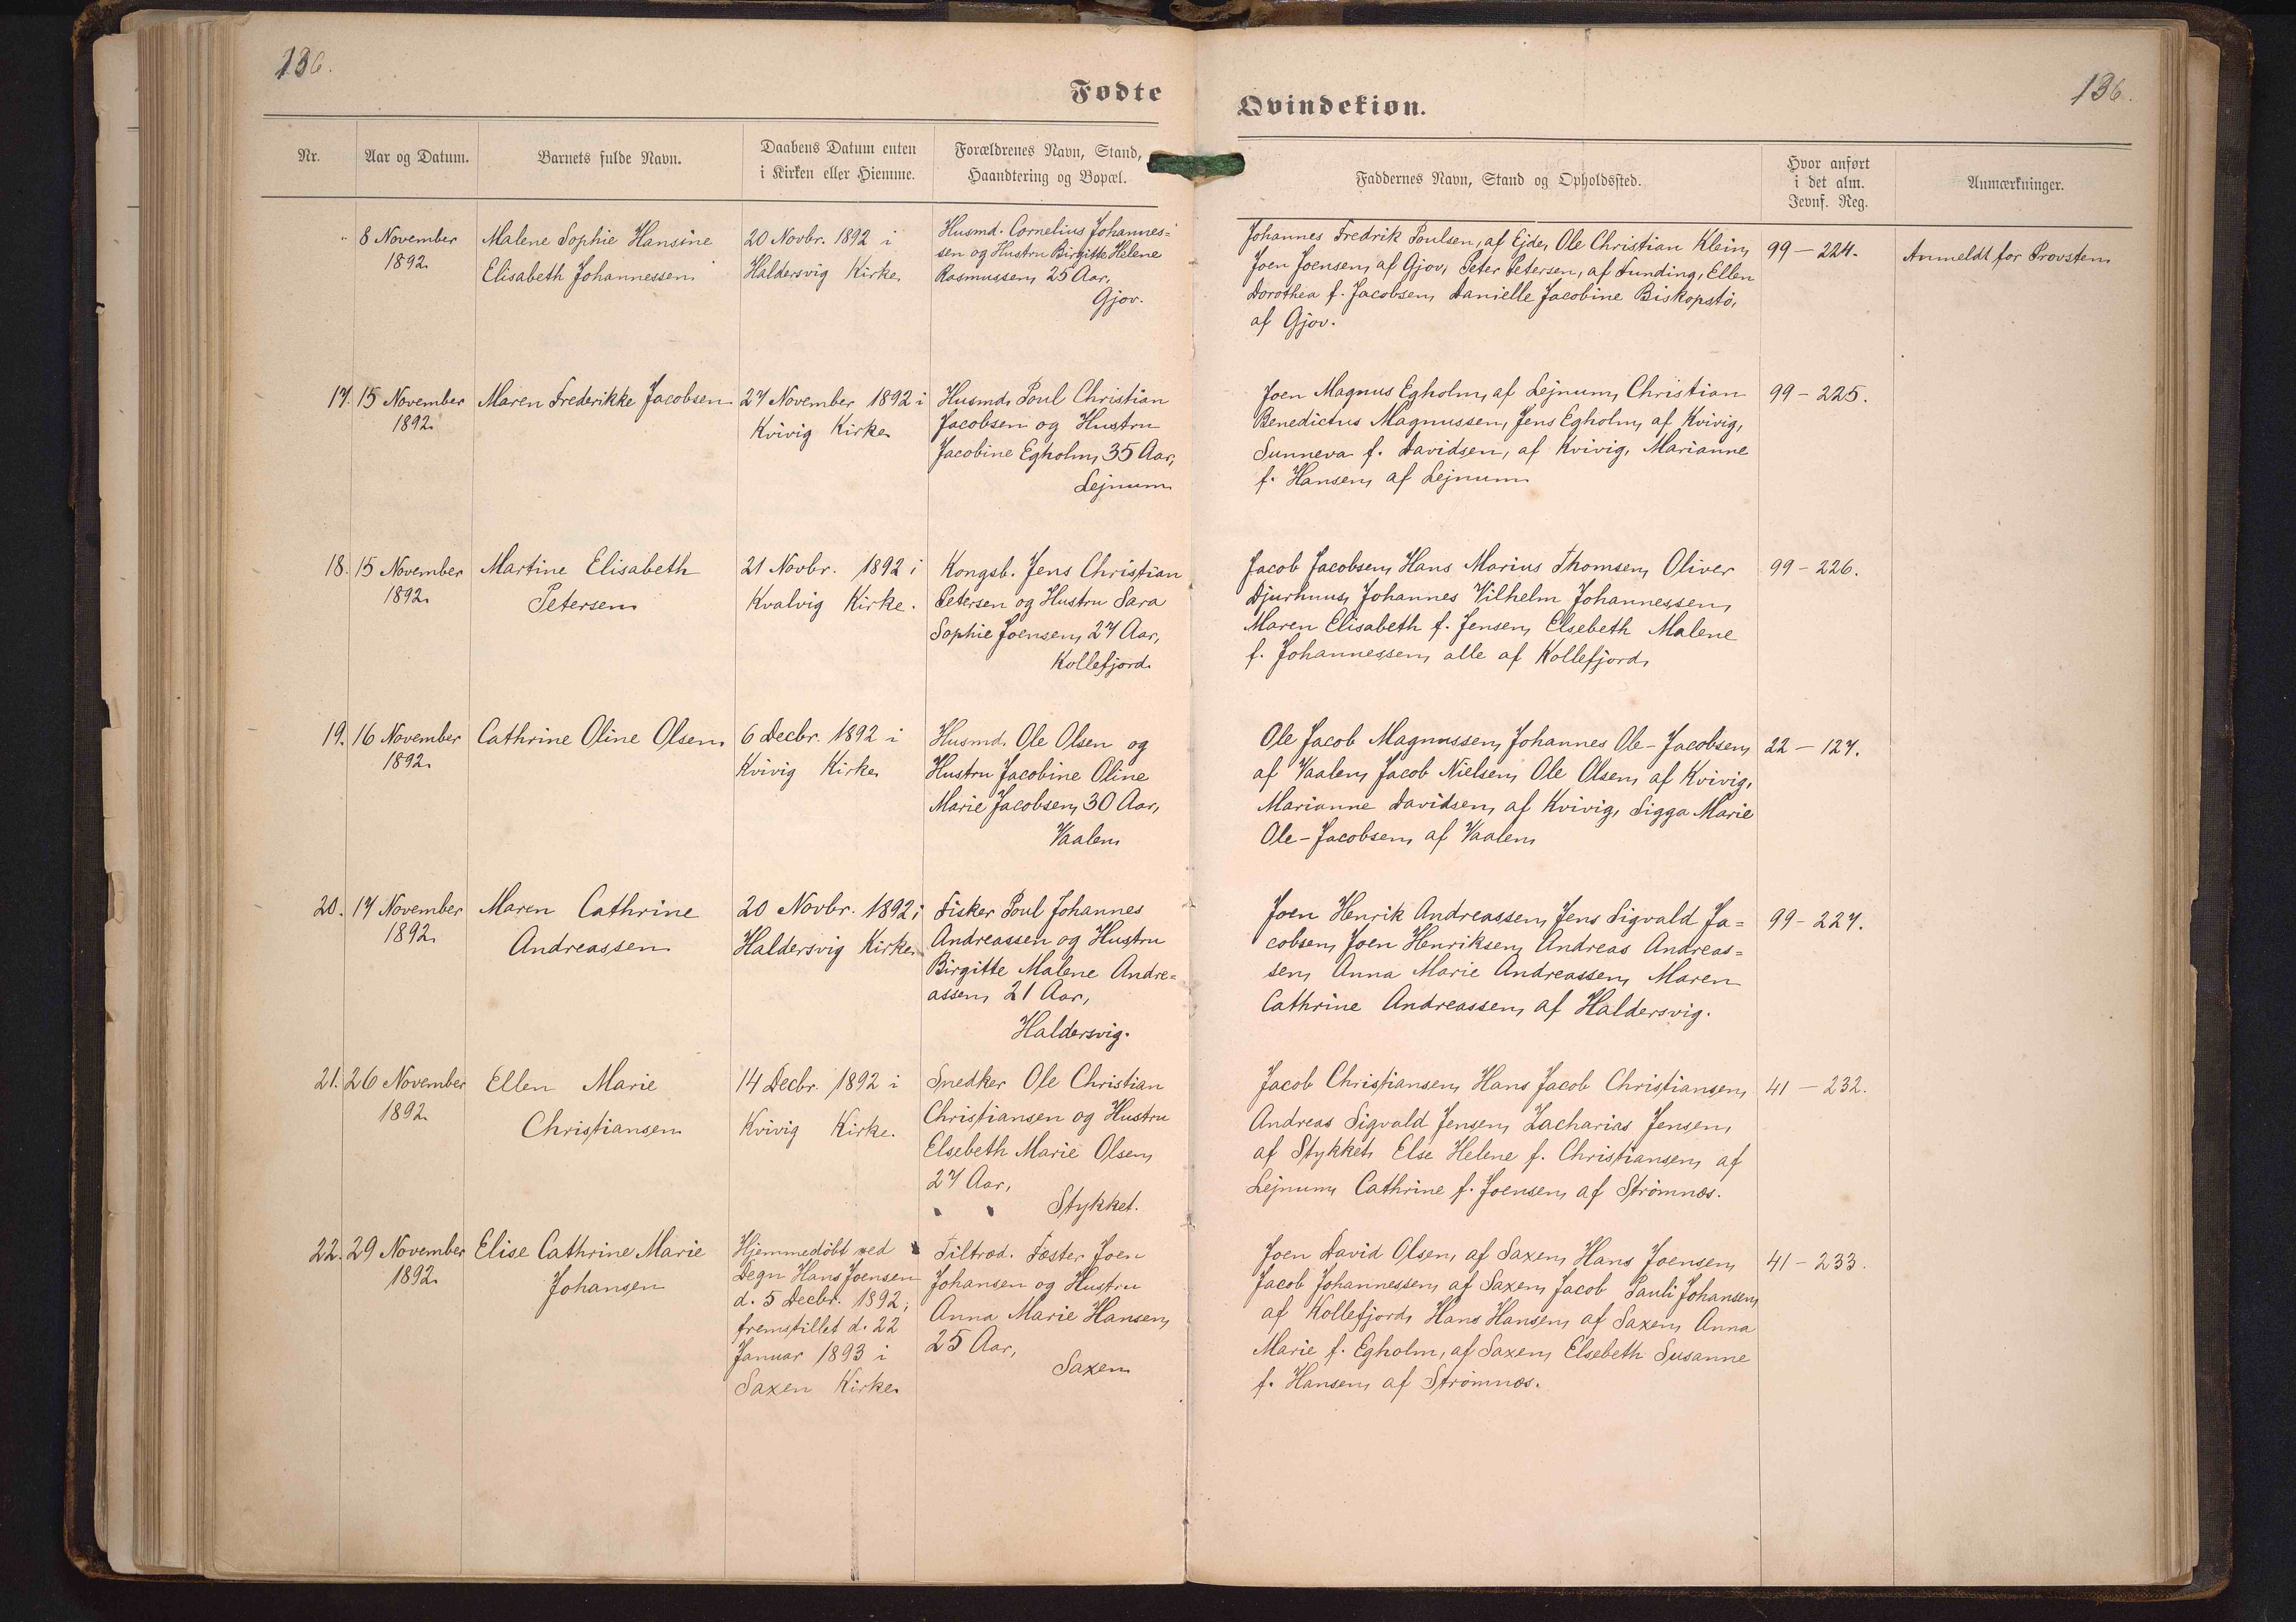 136.
Fødte
Nr.
Aar og Datum.
Barnets fulde Navn.
Daabens Datum enten
i Kirken eller Hiemme.
Forældrenes Navn, Stand,
Haandtering og Bopæl.
8 November
1892.
Malene Sophie Hansine
Elisabeth Johannessen.
20 Novbr. 1892 i
Haldersvig Kirke.
Husmd. Cornelius Johannes=
sen og Hustru Birgitte Helene
Rasmussen, 25 Aar,
Gjov.
17. 15 November
1892.
Maren Frederikke Jacobsen
27 November 1892 i
Kvivig Kirke.
Husmd. Poul Christian
Jacobsen og Hustru
Jacobine Egholm, 35 Aar,
Lejnum.
18. 15 November
1892.
Martine Elisabeth
Petersen.
21 Novbr. 1892 i
Kvalvig Kirke.
Kongsb. Jens Christian
Petersen og Hustru Sara
Sophie Joensen, 27 Aar,
Kollefjord.
19. 16 November
1892.
Cathrine Oline Olsen.
6 Decbr. 1892 i
Kvivig Kirke.
Husmd. Ole Olsen og
Hustru Jacobine Oline
Marie Jacobsen, 30 Aar,
Vaalen.
20. 17 November
1892.
Maren Cathrine
Andreassen.
20 Novbr. 1892 i
Haldersvig Kirke.
Fisker Poul Johannes
Andreassen og Hustru
Birgitte Malene Andre=
assen, 21 Aar,
Haldersvig.
21. 26 November
1892.
Ellen Marie
Christiansen.
14 Decbr. 1892 i
Kvivig Kirke.
Snedker Ole Christian
Christiansen og Hustru
Elsebeth Marie Olsen,
27 Aar,
Stykket.
22. 29 November
1892.
Elise Cathrine Marie
Johansen
Hjemmedöbt ved
Degn Hans Joensen
d. 5 Decbr. 1892;
fremstillet d. 22
Januar 1893 i
Saxen Kirke.
Tiltræd. Fæster Joen
Johansen og Hustru
Anna Marie Hansen,
25 Aar,
Saxen.
136.
Qvindekiøn.
Faddernes Navn, Stand og Opholdssted.
Hvor anført
i det alm.
Jevnf. Reg.
Anmærkninger.
Johannes Fredrik Poulsen, af Ejde, Ole Christian Klein,
Joen Joensen, af Gjov, Peter Petersen, af Funding, Ellen
Dorothea f. Jacobsen, Danielle Jacobine Biskopstö,
af Gjov.
99 – 224.
Anmeldt for Provsten.
Joen Magnus Egholm, af Lejnum, Christian
Benedictus Magnussen, Jens Egholm, af Kvivig,
Sunneva f. Davidsen, af Kvivig, Marianne
f. Hansen, af Lejnum.
99 – 225.
Jacob Jacobsen, Hans Marius Thomsen, Oliver
Djurhuus, Johannes Vilhelm Johannessen,
Maren Elisabeth f. Jensen, Elsebeth Malene
f. Johannessen, alle af Kollefjord.
99 – 226.
Ole Jacob Magnussen, Johannes Ole-Jacobsen,
af Vaalen, Jacob Nielsen, Ole Olsen, af Kvivig,
Marianne Davidsen, af Kvivig, Sigga Marie
Ole-Jacobsen, af Vaalen.
22 – 127.
Joen Henrik Andreassen, Jens Sigvald Ja=
cobsen, Joen Henriksen, Andreas Andreas=
sen, Anna Marie Andreassen, Maren
Cathrine Andreassen, af Haldersvig.
99 – 227.
Jacob Christiansen, Hans Jacob Christiansen,
Andreas Sigvald Jensen, Zacharias Jensen,
af Stykket, Else Helene f. Christiansen, af
Lejnum, Cathrine f. Joensen, af Strömnæs.
41 – 232.
Joen David Olsen, af Saxen, Hans Joensen,
Jacob Johannessen, af Saxen, Jacob Pauli Johansen,
af Kollefjord, Hans Hansen, af Saxen, Anna
Marie f. Egholm, af Saxen, Elsebeth Susanne
f. Hansen, af Strömnæs.
41 – 233.